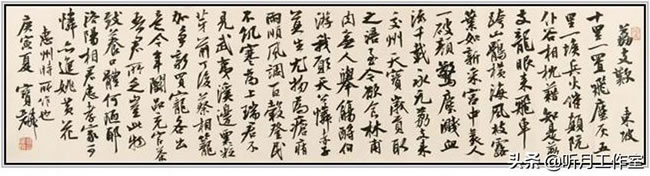 荔支歎 東坡
十里一置飛塵灰五
里一堠兵火催顛阬
仆谷相枕藉知是荔
支龍眼来飛車
跨山鶻橫海風枝露
葉如新采宮中美人
一破顏驚塵濺血
流千載永元荔支来
交州天寶歲貢取
之涪至今欲食林甫
肉無人舉觴酹伯
游我願天公憐赤子
莫生尤物為瘡痏
雨順風調百穀登民
不飢寒為上瑞君不
見武夷溪邊粟粒
芽前丁後蔡相籠
加爭新買寵各出
意今年鬥品充官茶
吾君所乏豈此物
致養口體何陋耶
洛陽相君忠孝家可
憐亦進姚黃花
惠州時所作也
庚寅夏 寶
头条 @听月工作室